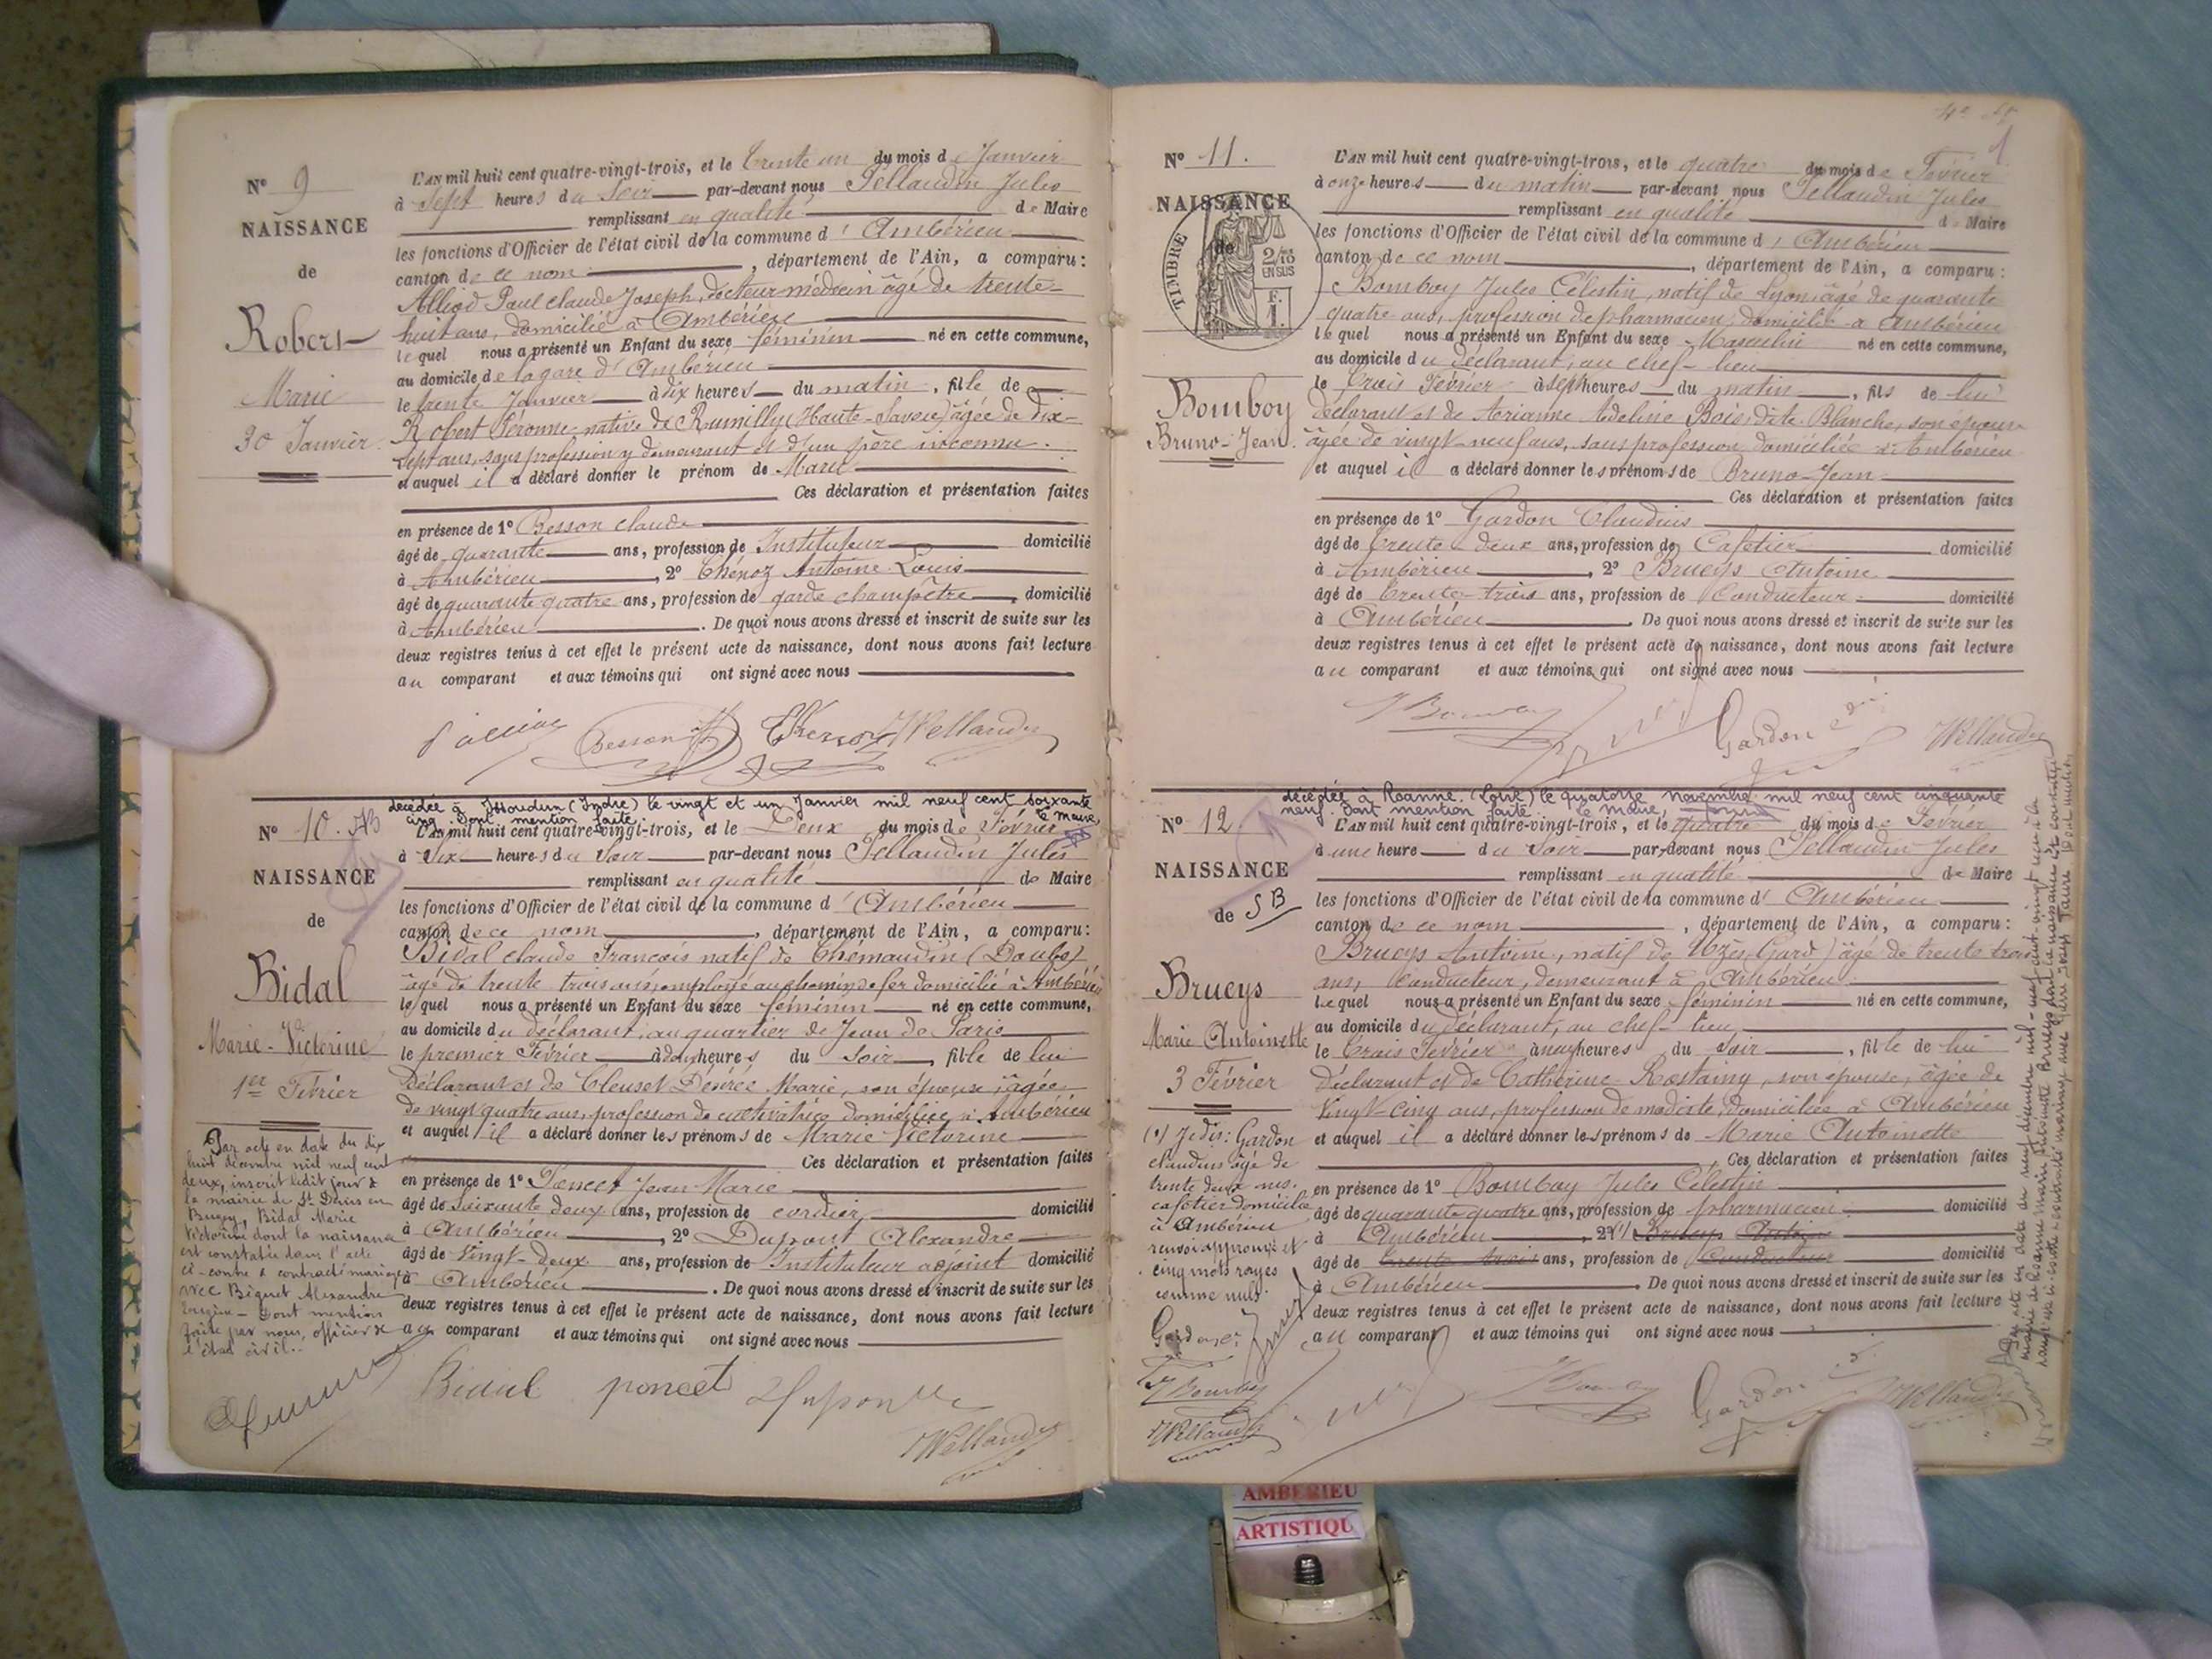 Nº 9
NAISSANCE
de
Robert
Marie
30 Janvier
L'AN mil huit cent quatre-vingt-trois, et le trente un du mois de Janvier
à sept heures du soir par-devant nous Pellaudin Jules
remplissant en qualité de Maire
les fonctions d'Officier de l'état civil de la commune d'Ambérieu
canton de ce nom, département de l'Ain, a comparu:
Alliod Paul claude Joseph, docteur médecin âgé de trente-
huit ans, domicilié à Ambérieu
lequel nous a présenté un Enfant du sexe féminin né en cette commune,
au domicile de la gare d'Ambérieu
le trente Janvier à dix heures du matin, fille de
Robert Péronne native de Rumilly (Haute-Savoie) âgée de dix-
sept ans, sans profession y demeurant et d'un père inconnu.
et auquel il a déclaré donner le prénom de Marie
Ces déclaration et présentation faites
en présence de 1º Besson claude
âgé de quarante ans, profession de Instituteur domicilié
à Ambérieu, 2º Chénoz Antoine Louis
âgé de quarante quatre ans, profession de garde champêtre, domicilié
à Ambérieu. De quoi nous avons dressé et inscrit de suite sur les
deux registres tenus à cet effet le présent acte de naissance, dont nous avons fait lecture
au comparant et aux témoins qui ont signé avec nous
Besson
décédée à Issoudun (Indre) le vingt et un Janvier mil neuf cent soixante
cinq. Dont mention faite. le Maire,
Nº 10.
NAISSANCE
de
Bidal
Marie-Victorine
1er Février
L'AN mil huit cent quatre-vingt-trois, et le Deux du mois de Février
à Six heures du soir par-devant nous Pellaudin Jules
remplissant en qualité de Maire
les fonctions d'Officier de l'état civil de la commune d'Ambérieu
canton de ce nom, département de l'Ain, a comparu:
Bidal claude François natif de Chémaudin (Doubs)
âgé de trente trois ans, employé au chemin de fer domicilié à Ambérieu
lequel nous a présenté un Enfant du sexe féminin né en cette commune,
au domicile du déclarant, au quartier de Jean de Paris
le premier Février à heures du soir, fille de lui
Déclarant et de Cleuset Désirée Marie, son épouse, âgée
de vingt quatre ans, profession de cultivatrice domiciliée à Ambérieu
et auquel il a déclaré donner les prénoms de Marie Victorine
Ces déclaration et présentation faites
en présence de 1º Poncet Jean Marie
âgé de Soixante deux ans, profession de cordier domicilié
à Ambérieu, 2º Dupont Alexandre
âgé de Vingt-deux ans, profession de Instituteur adjoint domicilié
à Ambérieu. De quoi nous avons dressé et inscrit de suite sur les
deux registres tenus à cet effet le présent acte de naissance, dont nous avons fait lecture
au comparant et aux témoins qui ont signé avec nous
Par acte en date du dix
huit décembre mil neuf cent
deux, inscrit ledit jour à
la mairie de St Denis en
Bugey, Bidal Marie
Victorine dont la naissance
est constatée dans l'acte
ci-contre a contracté mariage
avec Biguet Alexandre
Eugène - Dont mention
faite par nous, officier de
l'état civil.
Bidal poncet
Nº 11.
NAISSANCE
de
TIMBRE
2/10
EN SUS
F.
1.
Bomboy
Bruno-Jean.
L'AN mil huit cent quatre-vingt-trois, et le quatre du mois de Février
à onze heures du matin par-devant nous Pellaudin Jules
remplissant en qualité de Maire
les fonctions d'Officier de l'état civil de la commune d'Ambérieu
canton de ce nom, département de l'Ain, a comparu:
Bomboy Jules Célestin, natif de Lyon, âgé de quarante
quatre ans, profession de pharmacien, domicilié à Ambérieu
lequel nous a présenté un Enfant du sexe Masculin né en cette commune,
au domicile du déclarant, au chef-lieu
le trois Février à sept heures du matin, fils de lui
déclarant et de Arianne Adeline Bois, dite Blanche, son épouse
âgée de vingt neuf ans, sans profession domiciliée à Ambérieu
et auquel il a déclaré donner les prénoms de Bruno-Jean
Ces déclaration et présentation faites
en présence de 1º Gardon Claudius
âgé de trente-deux ans, profession de Cafetier domicilié
à Ambérieu, 2º Brueys Antoine
âgé de trente-trois ans, profession de Conducteur domicilié
à Ambérieu. De quoi nous avons dressé et inscrit de suite sur les
deux registres tenus à cet effet le présent acte de naissance, dont nous avons fait lecture
au comparant et aux témoins qui ont signé avec nous
Gardon
décédée à Roanne (Loire) le quatorze novembre mil neuf cent cinquante
neuf. Dont mention faite. le Maire,
Nº 12
NAISSANCE
de
Brueys
Marie Antoinette
3 Février
L'AN mil huit cent quatre-vingt-trois, et le quatre du mois de Février
à une heure du soir par-devant nous Pellaudin Jules
remplissant en qualité de Maire
les fonctions d'Officier de l'état civil de la commune d'Ambérieu
canton de ce nom, département de l'Ain, a comparu:
Brueys Antoine, natif de Uzès (Gard) âgé de trente trois
ans, Conducteur, demeurant à Ambérieu
lequel nous a présenté un Enfant du sexe féminin né en cette commune,
au domicile du déclarant, au chef-lieu
le trois Février à neuf heures du soir, fille de lui
déclarant et de Catherine Rostaing, son épouse, âgée de
vingt-cinq ans, profession de modiste, domiciliée à Ambérieu
et auquel il a déclaré donner les prénoms de Marie Antoinette
Ces déclaration et présentation faites
en présence de 1º Bomboy Jules Célestin
âgé de quarante quatre ans, profession de pharmacien domicilié
à Ambérieu, 2º (1) Brueys Antoine
âgé de trente trois ans, profession de Conducteur domicilié
à Ambérieu. De quoi nous avons dressé et inscrit de suite sur les
deux registres tenus à cet effet le présent acte de naissance, dont nous avons fait lecture
au comparant et aux témoins qui ont signé avec nous
(1) Je dis: Gardon
claudius âgé de
trente deux ans.
cafetier domicilié
à Ambérieu
renvoi approuvé et
cinq mots rayés
comme nuls.
Gardon
Gardon
AMBERIEU
ARTISTIQU